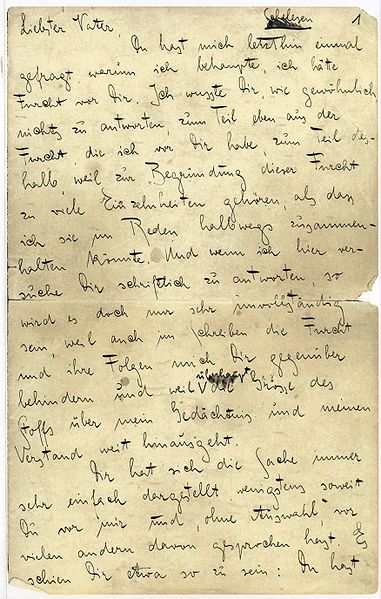 1
Liebster Vater,
Du hast mich letzthin einmal
gefragt, warum ich behaupte, ich hätte
Furcht vor Dir. Ich wusste Dir, wie gewöhnlich,
nichts zu antworten, zum Teil eben aus der
Furcht, die ich vor Dir habe, zum Teil des-
halb, weil zur Begründung dieser Furcht
zu viele Einzelnheiten gehören, als dass
ich sie im Reden halbwegs zusammen-
halten könnte. Und wenn ich hier ver-
suche Dir schriftlich zu antworten, so
wird es doch nur sehr unvollständig
sein, weil auch im Schreiben die Furcht
und ihre Folgen mich Dir gegenüber
behindern und weil die Grösse des
Stoffs über mein Gedächtnis und meinen
Verstand weit hinausgeht.
Dir hat sich die Sache immer
sehr einfach dargestellt, wenigstens soweit
Du vor mir und, ohne Auswahl, vor
vielen andern davon gesprochen hast. Es
schien Dir etwa so zu sein: Du hast